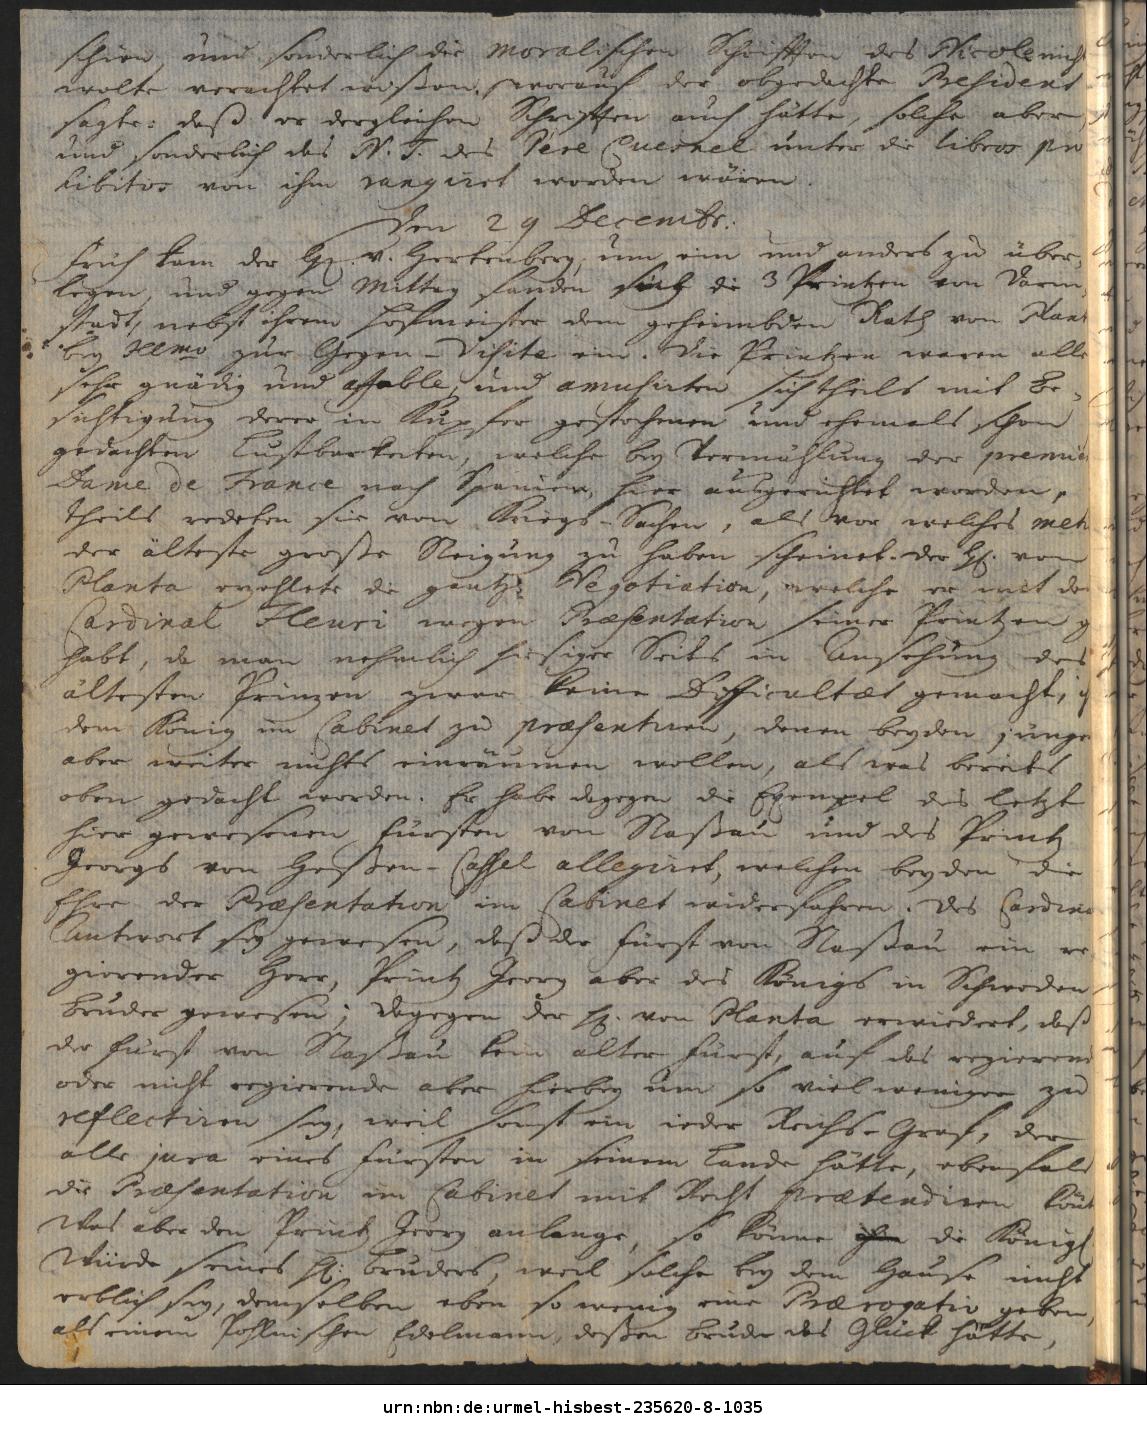 schien, und sonderlich die moralischen Schrifften des Nicole nicht
wolte verachtet wißen, worauf der obgedachte President
sagte: daß er dergleichen Schrifften auch hätte, solche aber,
und sonderlich das N. T. des Pere Quesnel unter die libros pro
hibitos von ihm rangiret worden wären.
Den 29 Decembr.
Früh kam der H. v. Gerkenberg, um ein und anders zu über,
legen, und gegen Mittag fanden sich die 3 Printzen von Darm,
stadt, nebst ihrem Hofmeister dem geheimbden Rath von Plant
bey Sermo zur Gegen-Visite ein. Die Printzen waren alle
sehr gnädig und affable, und amusirten sich theils mit Be,
sichtigung derer in Kupfer gestochenen und ehemals schon
gedachten Lustbarkeiten, welche bey Vermählung der premiere
Dame de France nach Spanien, hier ausgerichtet worden,
theils redeten sie von Kriegs-Sachen, als vor welches
der älteste große Neigung zu haben scheinet. Der H. von
Planta erzehlete die gantze Negotiation, welche er mit dem
Cardinal Fleuri wegen Præsentation seiner Printzen g
habt, da man nehmlich hiesiger Seits in Ansehung des
ältesten Prinzen zwar keine Difficultæt gemacht,
dem König im Cabinet zu præsentiren, denen beyden junge
aber weiter nichts einräumen wollen, als was bereits
oben gedacht worden. Er habe dagegen die Exempel des letzt
hier gewesenen Fürsten von Naßau und des Printz
Georgs von Heßen-Cassel allegiret, welchen beyden die
Ehre der Præsentation im Cabinet widerfahren. Des Cardina
Antwort sey gewesen, daß der Fürst von Naßau ein re
gierender Herr, Printz Georg aber des Königs in Schweden
Bruder gewesen; dagegen der H. von Planta erwiedert, daß
der Fürst von Naßau kein alter Fürst, auf das regierend
oder nicht regierende aber hierbey um so viel weniger zu
reflectiren sey, weil sonst ein ieder Reichs-Graf, der
alle jura eines Fürsten in seinem Lande hätte, ebenfals
die Præsentation im Cabinet mit Recht prætendiren könt
Was aber den Printz Georg anlange, so könne die Königl.
Würde seines H. Bruders, weil solche bey dem Hause nicht
erblich sey, demselben eben so wenig eine Prærogativ geben,
als einem Pohlnischen Edelmann, deßen Bruder das Glück hätte,
urn:nbn:de:urmel-hisbest-235620-8-1035